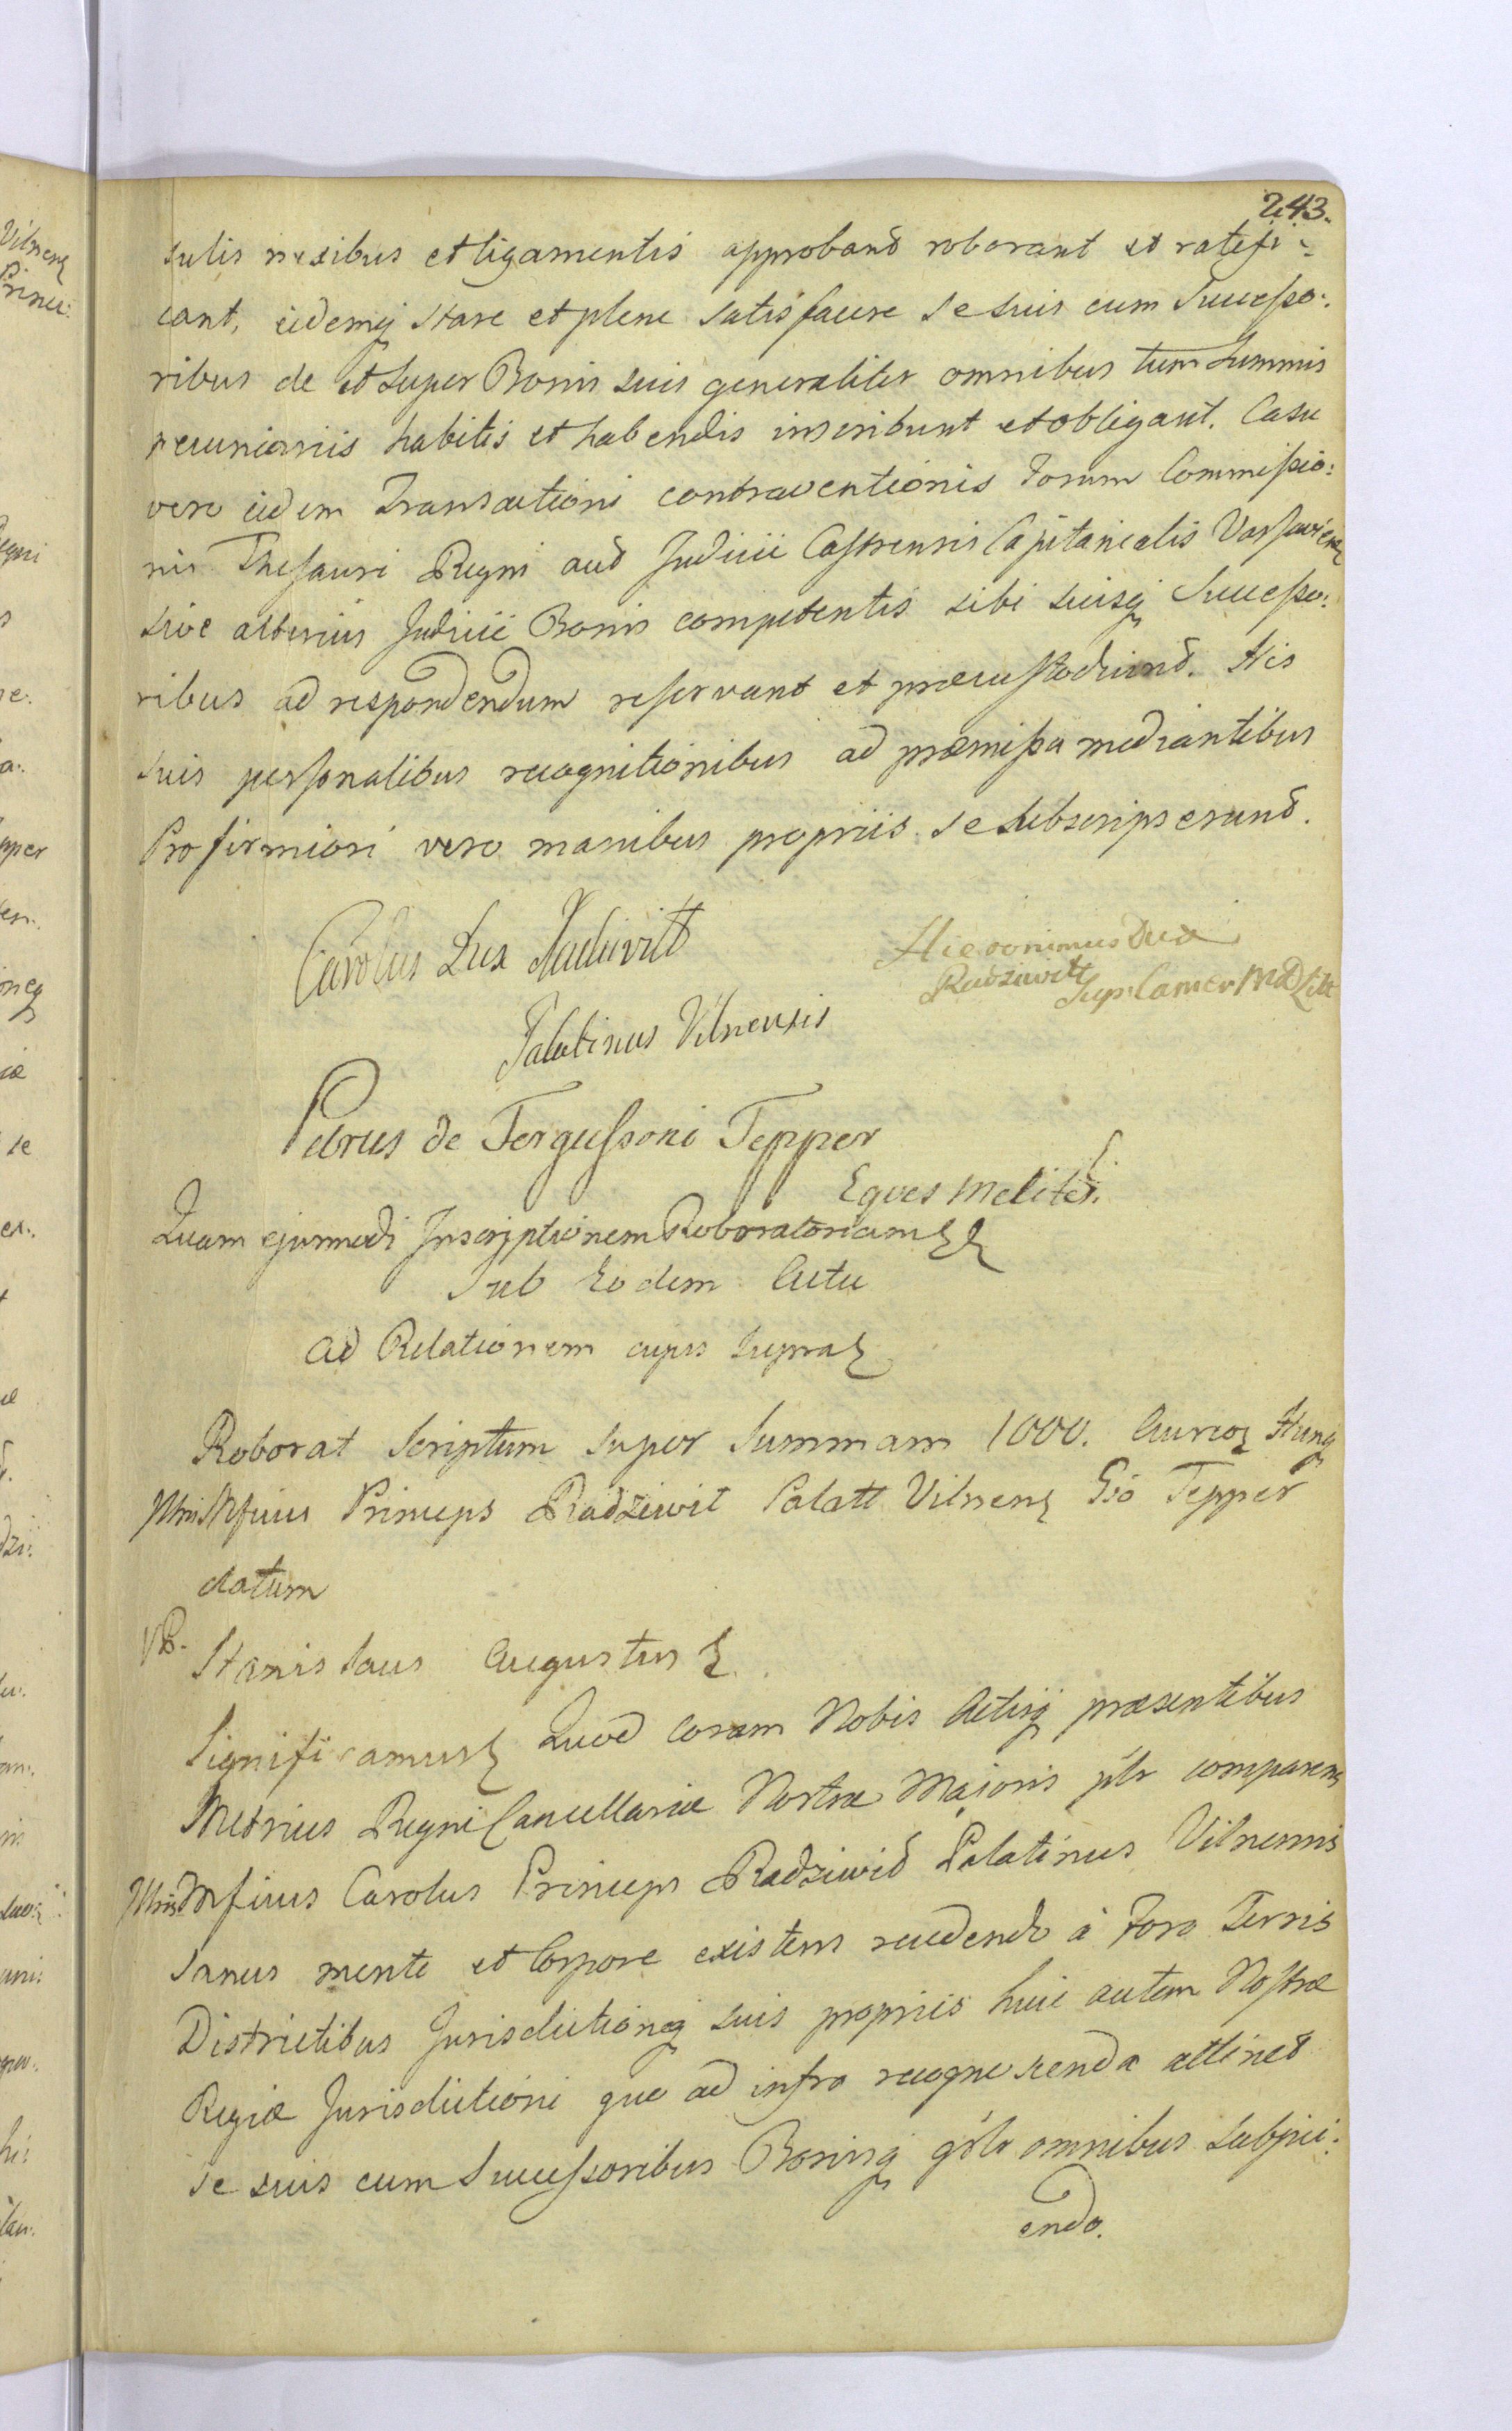 243.
sulis nexibus et ligamentis approband roborant et ratifi:
cant, eidemq stare et plene satisfacere se suis cum Successo:
ribus de et super Bonis suis generaliter omnibus tum Summis
pecuniariis habitis et habendis inscribunt et obligant. Casu
vero eidem Transactioni contraventionis Forum Commissio:
nis Thesauri Regni aut Judicii Castrensis Capitanealis Varsavien
sive alterius Judicii Bonis competentis sibi suisq Successo:
ribus ad respondendum reservant et præcustodiunt. His
suis personalibus recognitionibus ad præmissa mediantibus
Pro firmiori vero manibus propriis se subscripserunt.
Carolus Dux Radzivill
Palatinus Vilnensis
Hieronimus Dux
Radziwill Sup: Camer M D Litt
Petrus de Fergussoni Tepper
Eques Melites.
Quam ejusmodi Inscriptionem Roboratoriam
Sub Eodem Actu
ad Relationem cujus supra
Roborat Scriptum super Summam 1000. Aureor Hung
Illris Mfcus Princeps Radziwil Palatt Vilnens Gso Tepper
datum
Stanislaus Augustus
Significamus Quod coram Nobis Actisq præsentibus
Metrices Regni Cancellariæ Nostræ Majoris pslr comparens
Illris Mfcus Carolus Princeps Radziwił Palatinus Vilnensis
Sanus mente et Corpore existens recedendo à Foro Terris
Districtibus Jurisdictioneq suis propriis huic autem Nostræ
Regiæ Jurisdictioni quo ad infra recognoscenda attinet
se suis cum Successoribus Bonisq gñlr omnibus subjici:
endo.